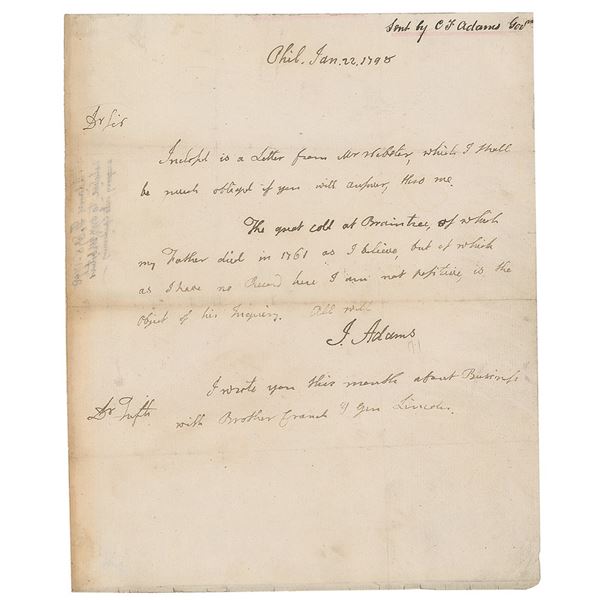 Sent by C F Adams Gov
Phil. Jan. 22. 1798
Dr Sir
Inclosd is a Letter from Mr Webster, which I shall
be much obligd if you will answer, thro me.
The great cold at Braintree, of which
my Father died in 1761 as I believe, but of which
as I have no Record here I am not positive, is the
object of his Inquiry. All well
J. Adams
I wrote you this month about Business
Dr Tufts with Brother Cranch & Gen Lincoln.